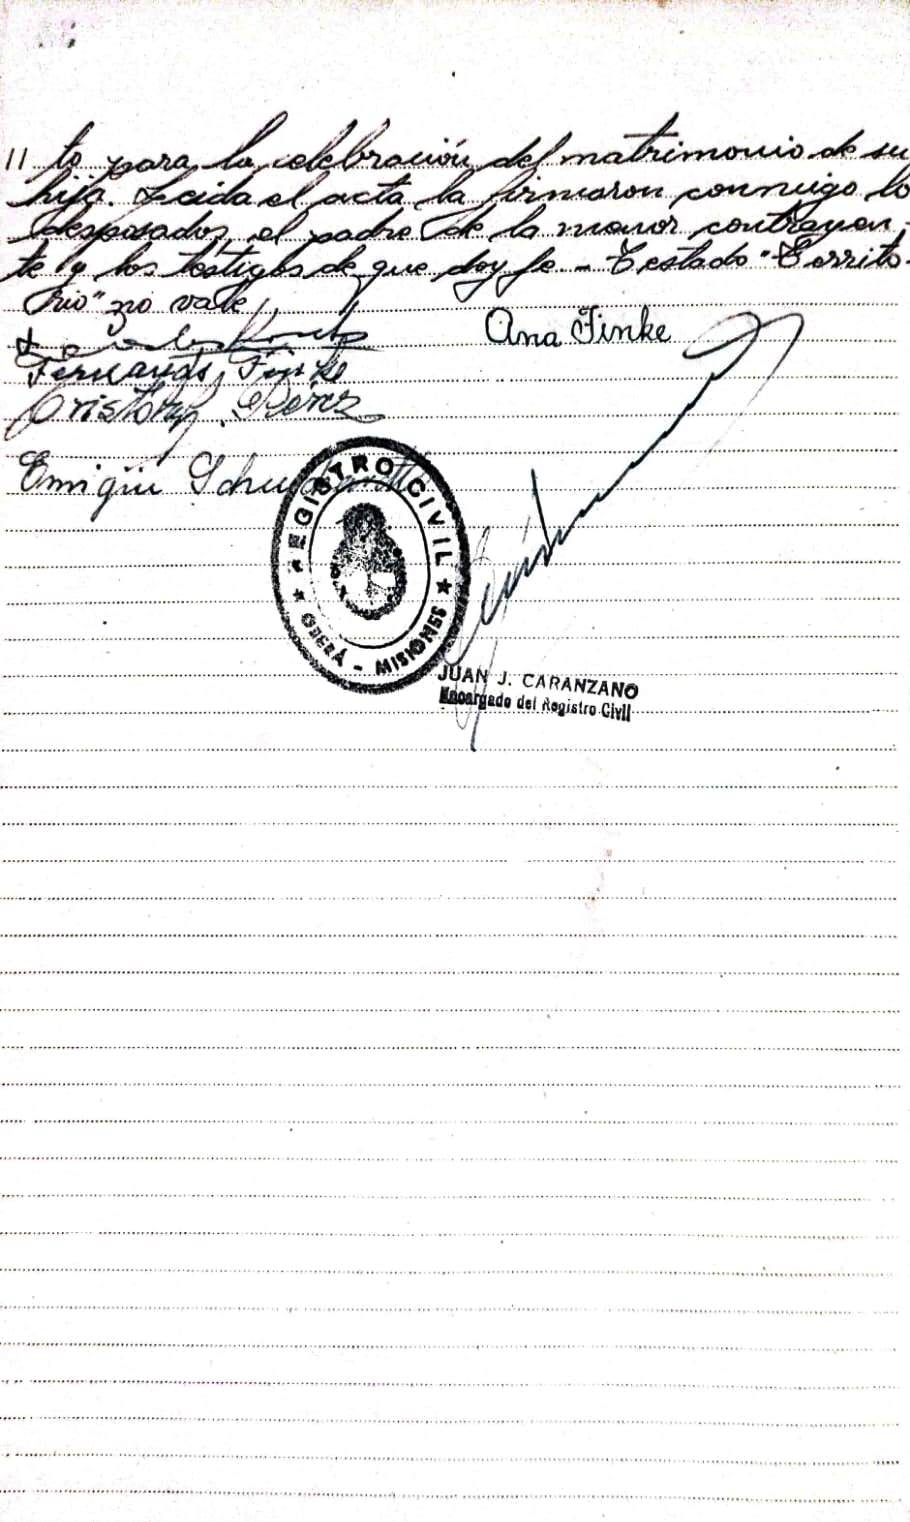 // to para la celebración del matrimonio de su
hija. Leida el acta, la firmaron conmigo lo
desposados, el padre de la menor contrayen-
te y los testigos de que doy fe - Testado "Territo-
rio" no vale
Ana Finke
Fernando Finke
Cristobal Pérez
REGISTRO CIVIL
OBERÁ - MISIONES
JUAN J. CARANZANO
Encargado del Registro Civil